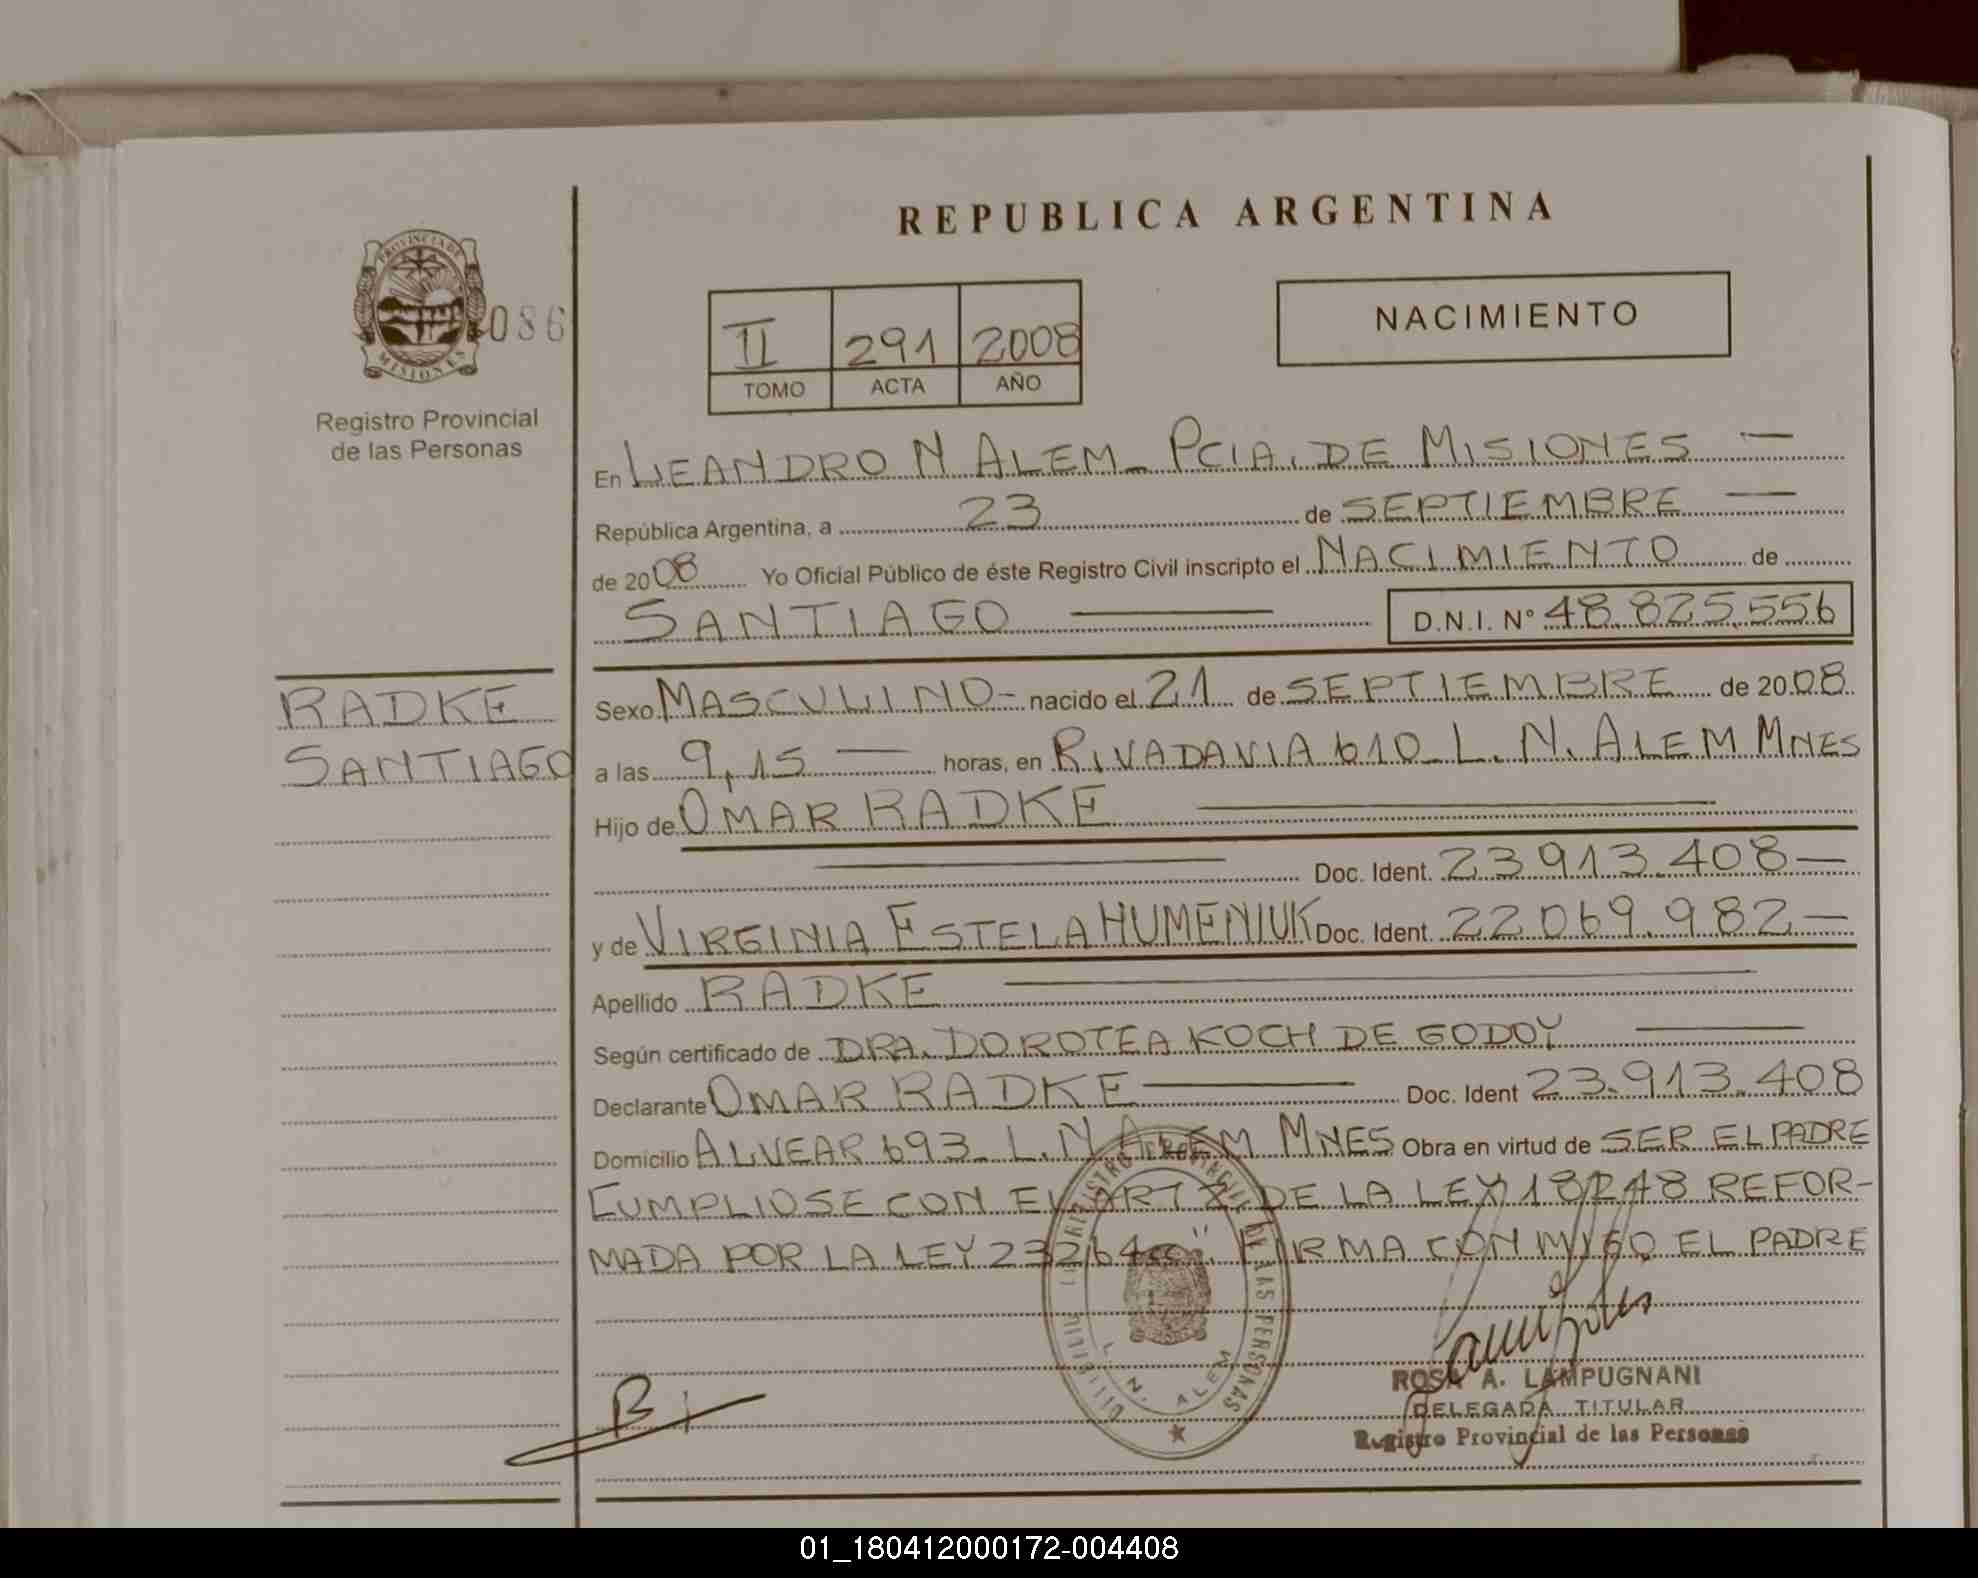 REPUBLICA ARGENTINA
PROVINCIA DE
MISIONES
086
Registro Provincial
de las Personas
II 291 2008
TOMO ACTA AÑO
NACIMIENTO
En LEANDRO N ALEM - PCIA. DE MISIONES —
República Argentina, a 23 de SEPTIEMBRE —
de 2008 Yo Oficial Público de éste Registro Civil inscripto el NACIMIENTO de
SANTIAGO — D.N.I. N° 48.825.556
RADKE
SANTIAGO
Sexo MASCULINO - nacido el 21 de SEPTIEMBRE de 2008
a las 9,15 — horas, en RIVADAVIA 610 - L. N. ALEM MNES
Hijo de OMAR RADKE —
— Doc. Ident. 23 913.408 —
y de VIRGINIA ESTELA HUMENIUK Doc. Ident. 22 069.982 —
Apellido RADKE —
Según certificado de DRA. DOROTEA KOCH DE GODOY —
Declarante OMAR RADKE — Doc. Ident 23.913.408
Domicilio ALVEAR 693 - L. N ALEM MNES Obra en virtud de SER EL PADRE
CUMPLIOSE CON EL ART 2 DE LA LEY 18248 REFOR-
MADA POR LA LEY 23264 FIRMA CONMIGO EL PADRE
REGISTRO PROVINCIAL DE LAS PERSONAS
L. N. ALEM
ROSA A. LAMPUGNANI
DELEGADA TITULAR
Registro Provincial de las Personas
01_180412000172-004408